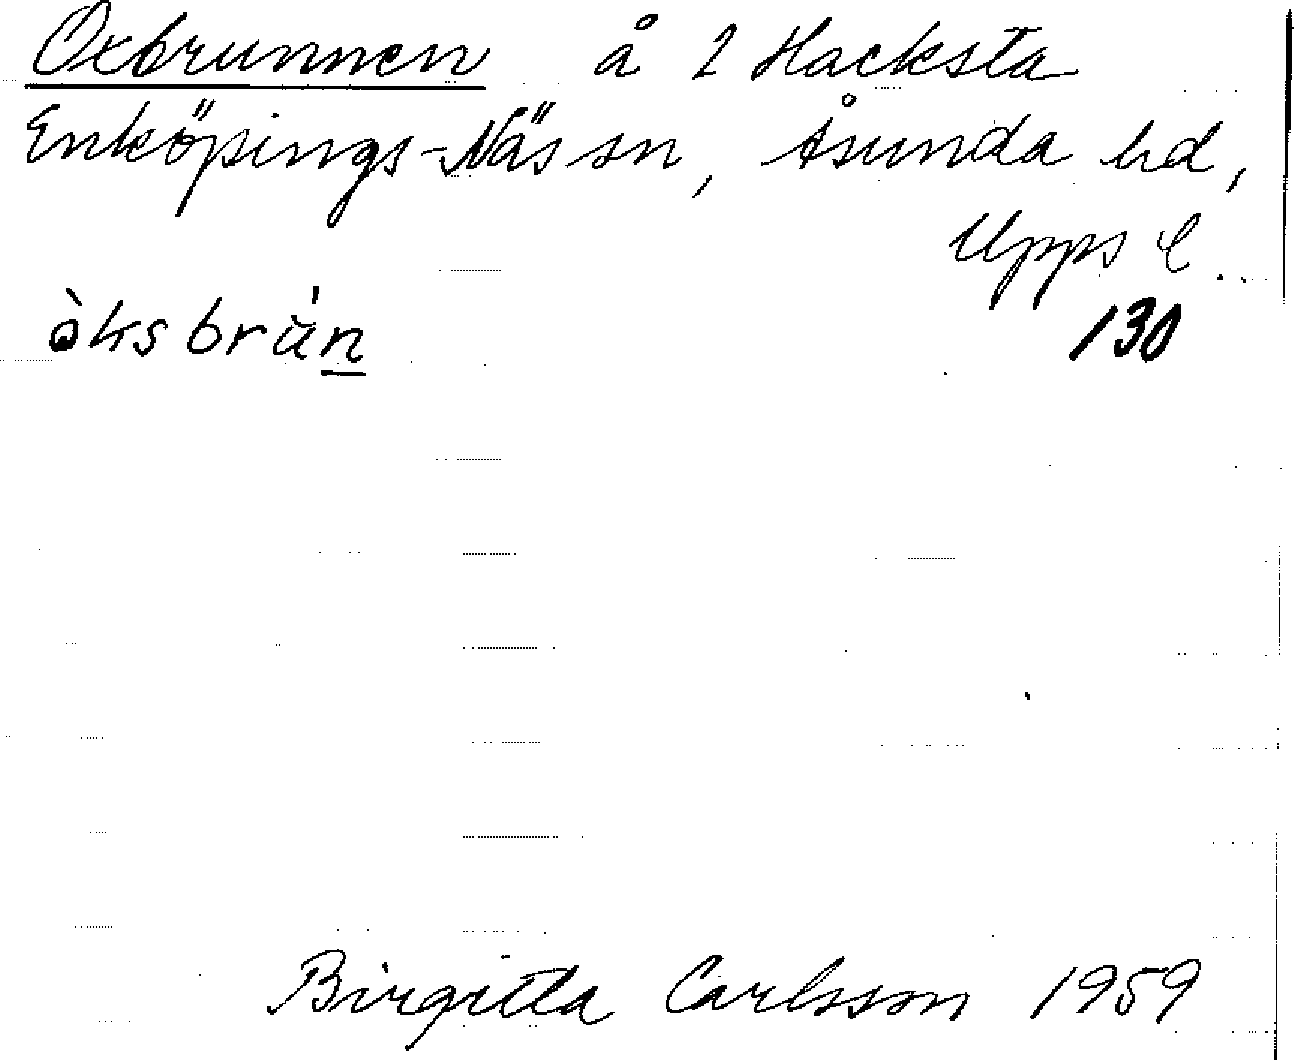 Oxbrunnen å 2 Hacksta
Enköpings-Näs sn, Åsunda hd,
Upps l.
òksbrùn
130
Birgitta Carlsson 1959